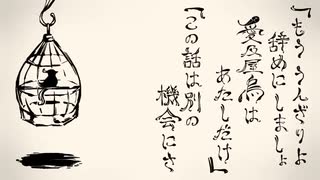 「もううんざりよ
辞めにしましょ
愛玩屋鳥は
あたしだけ」
「この話は別の
機会にさ